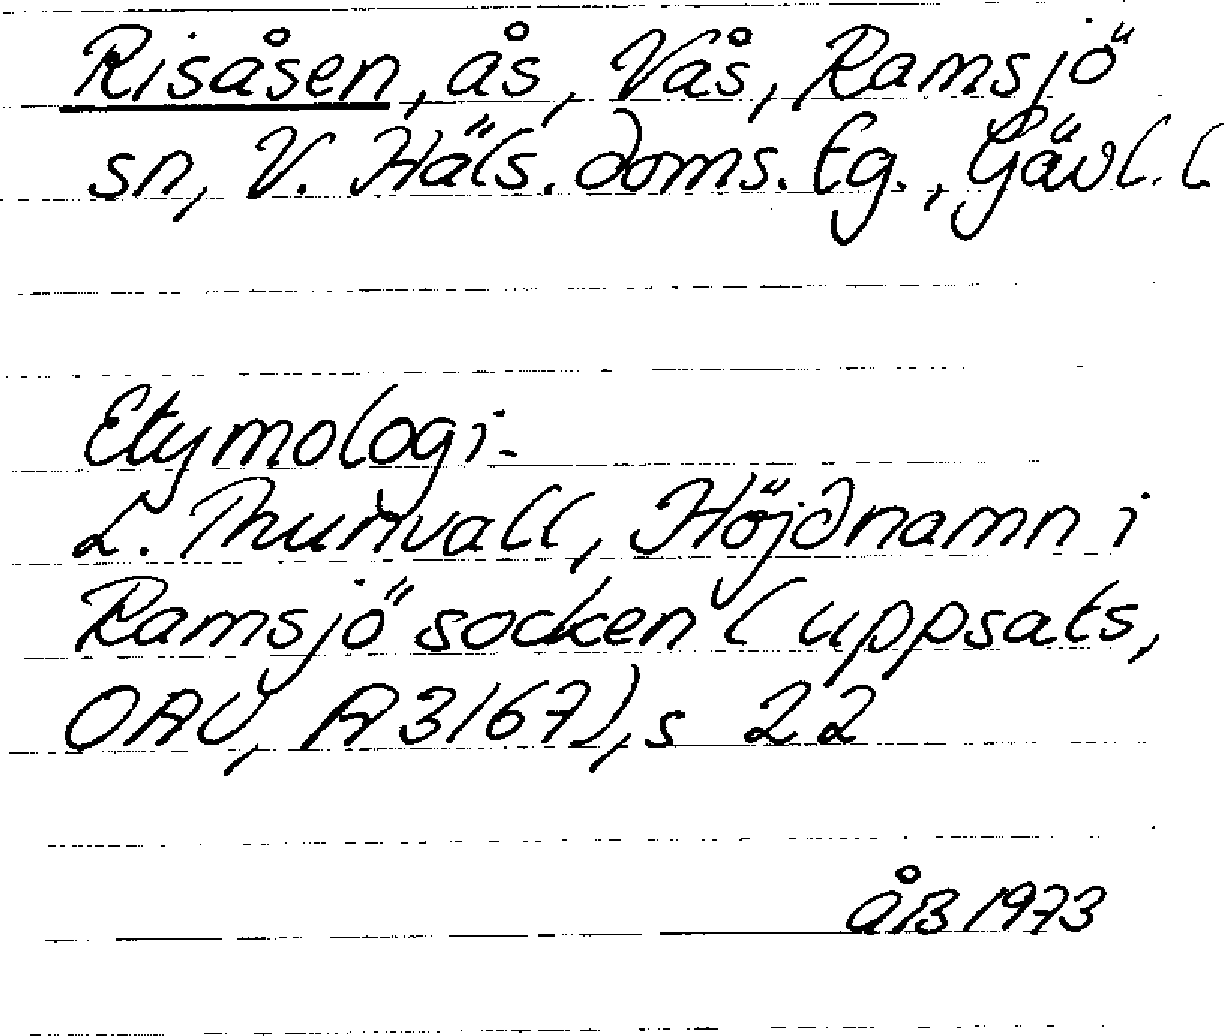 Risåsen, ås, Vås, Ramsjö
sn, V. Häls. doms. tg., Gävl. l.
Etymologi.
L. Thunvall, Höjdnamn i
Ramsjö socken (uppsats,
OAU, A 3167), s 22
ÅB 1973